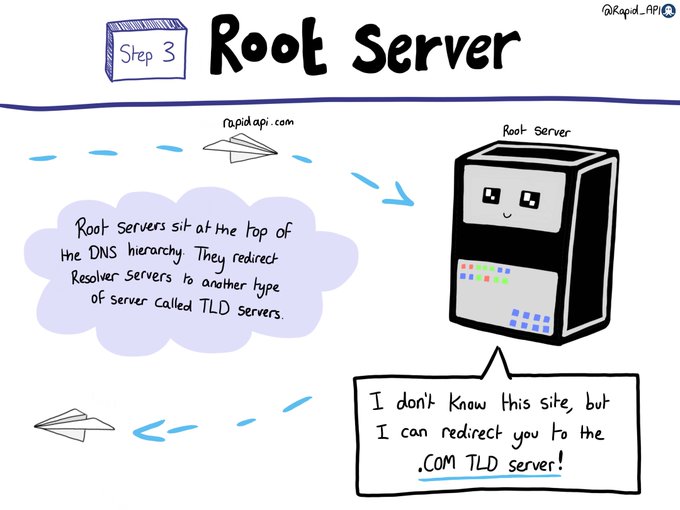 @Rapid_API
Step 3
Root Server
rapidapi.com
Root server
Root servers sit at the top of
the DNS hierarchy. They redirect
Resolver servers to another type
of server called TLD servers.
I don't know this site, but
I can redirect you to the
.COM TLD server!